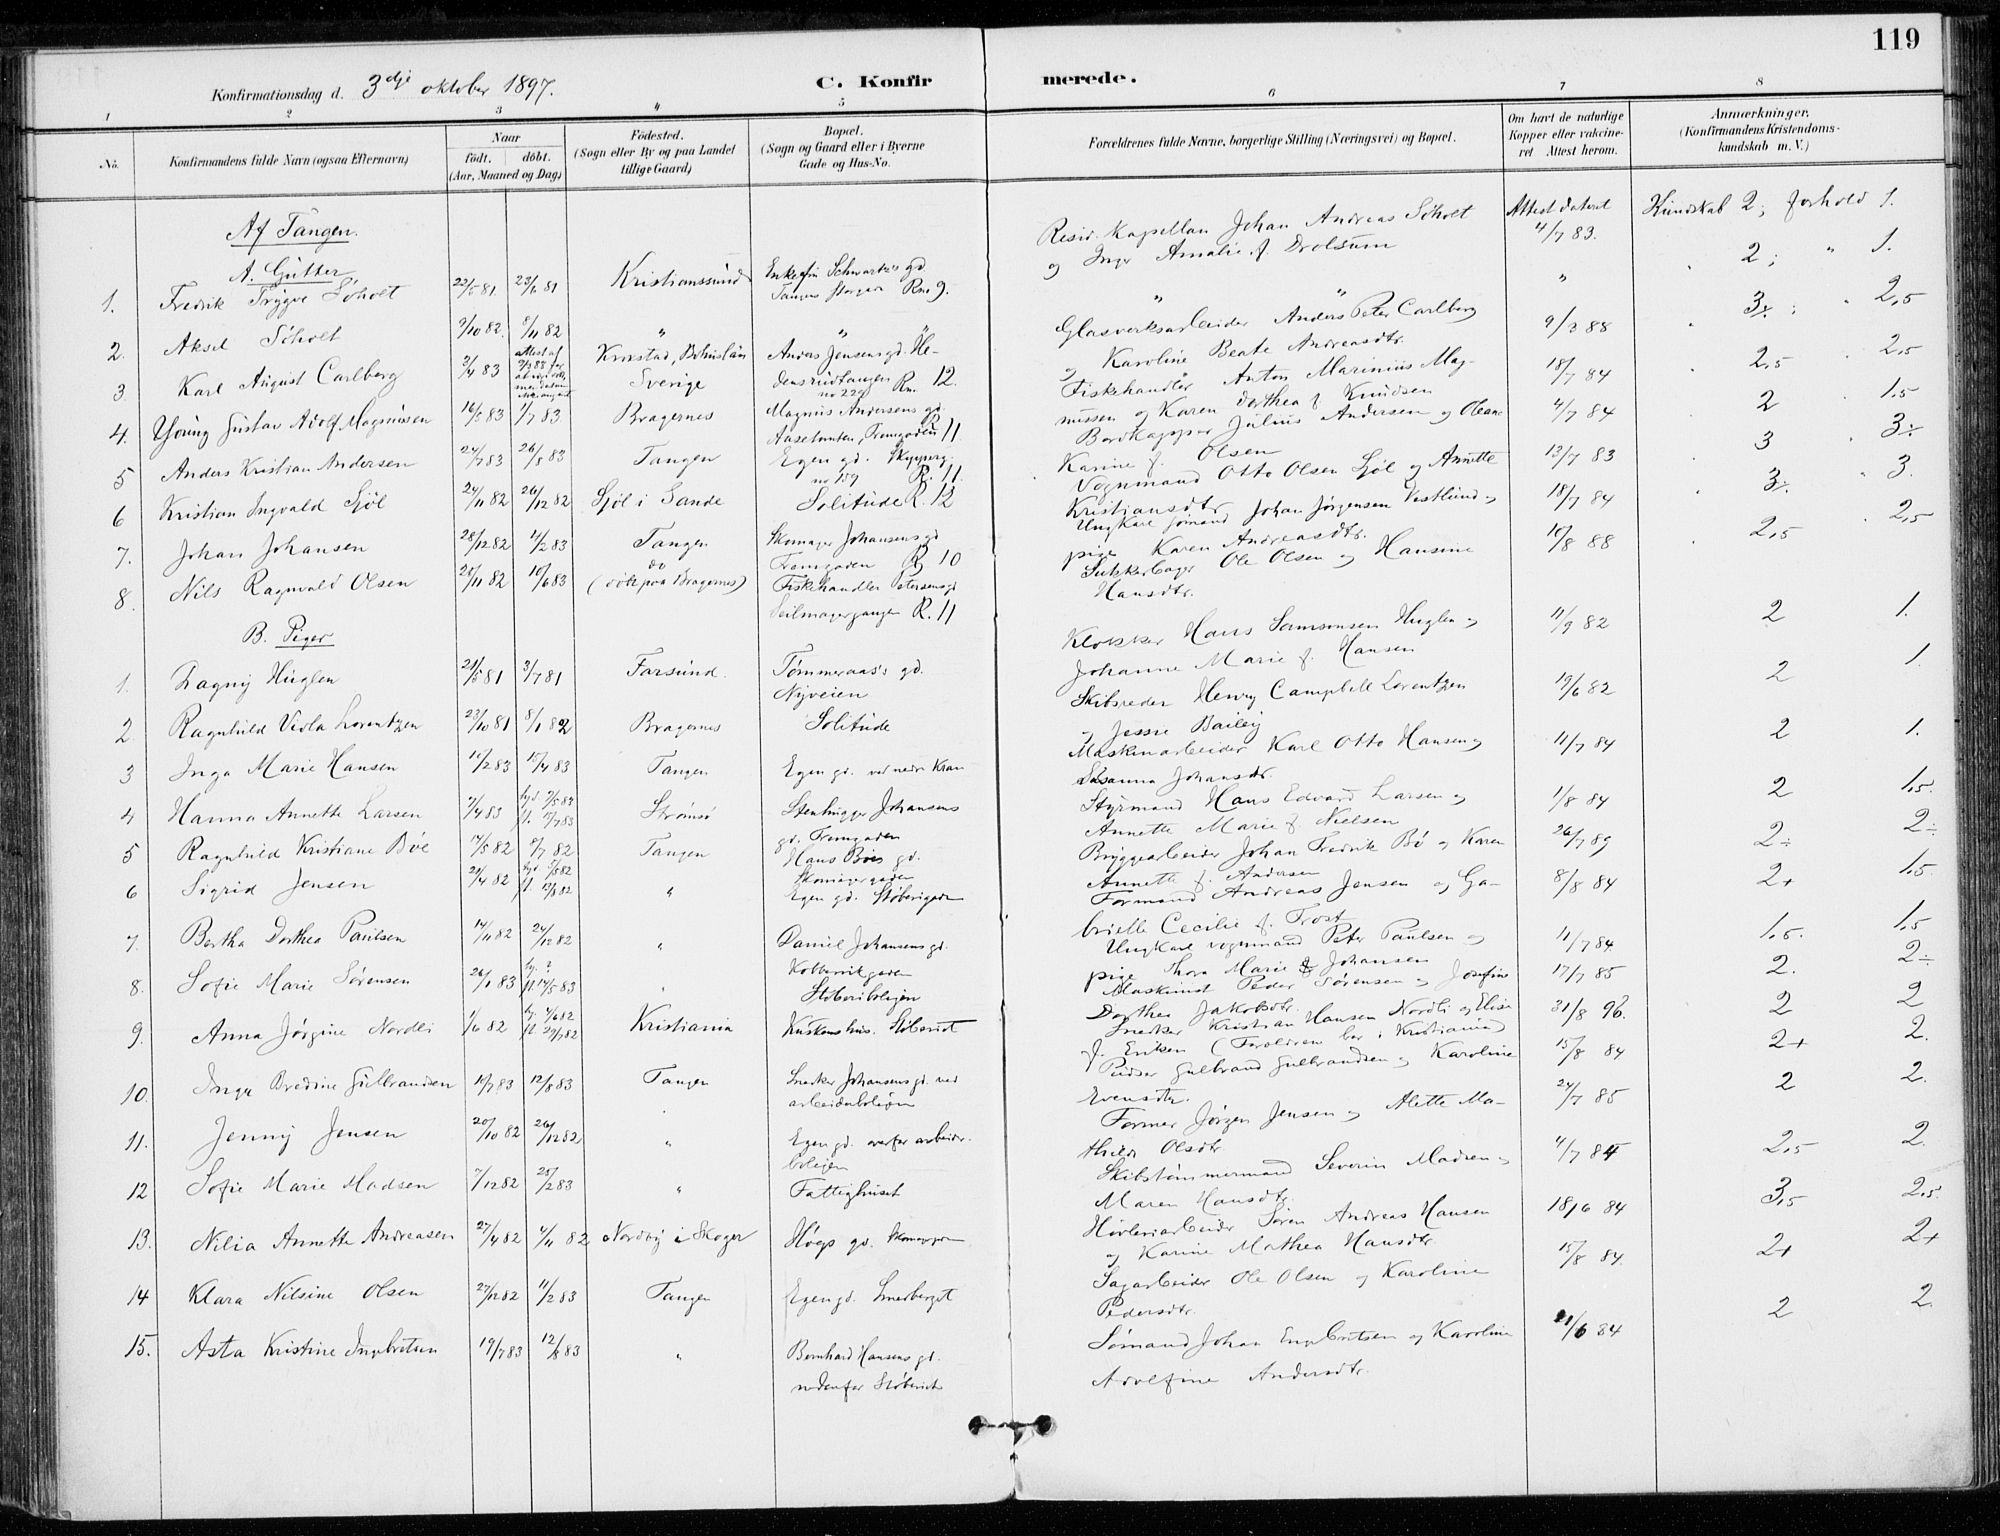 119
Konfirmationsdag d. 3dje oktober 1897.
C. Konfirmerede.
1 2 3 4 5 6 7 8
No.
Konfirmandens fulde Navn (ogsaa Efternavn)
Naar
født. døbt.
(Aar, Maaned og Dag)
Fødested.
(Sogn eller By og paa Landet
tillige Gaard)
Bopæl.
(Sogn og Gaard eller i Byerne
Gade og Hus-No.
Forældrenes fulde Navne, borgerlige Stilling (Næringsvei) og Bopæl.
Om havt de naturlige
Kopper eller vakcine-
ret Attest herom.
Anmærkninger.
(Konfirmandens Kristendoms-
kundskab m. V.)
Af Tangen.
A. Gutter
1. Fredrik Trygve Søholt 22/5 81 23/6 81 Kristianssund Enkefru Schwartz's gd. Tangens Storgade Rm 9.
Resid. Kapellan Johan Andreas Søholt og Inga Amalie f. Drolsum Attest dateret 4/7 83. Kundskab 2; forhold 1.
2. Aksel Søholt 9/10 82 8/11 82 " " "
" " " 2; " 1.
3 Karl August Carlberg 3/4 83 Krokstad, Bohuslän Sverige Anders Jensens gd. He-densrudtangen Rm. 12.
Glasverksarbeider Anders Peter Carlberg og Karoline Beate Andreasdtr. 9/3 88 3÷ ; " 2,5
4. Young Gustav Adolf Magnussen 16/5 83 1/7 83 Bragernes Magnus Andersens gd. Tomegaden 11
Fiskehandler Anton Marinius Mag-nussen og Karen Dorthea f. Knudsen 18/7 84 2,5 2,5
5 Anders Kristian Andersen 24/7 83 26/8 83 Tangen Egen gd. no 159 R. 11.
Bordkapper Julius Andersen og Oleane Karine f. Olsen 4/7 84 2 1,5
6 Kristian Ingvald Sjøl 24/11 82 26/12 82 Sjøl i Sande Solitude R. 12
Vognmand Otto Olsen Sjøl og Annette Kristiansdtr. 13/7 83 3 3÷
7. Johan Johansen 28/12 82 11/2 83 Tangen Skomager Johansens gd Tomegaden R 10
Ungkarl sømand Johan Jørgensen Vestlund og pige Karen Andreasdtr. 18/7 84 3÷. 3.
8. Nils Ragnvald Olsen 20/11 82 10/6 83 do (døbt paa Bragernes) Fiskehandler Petersens gd Seilmagergangen R. 11
Ole Olsen og Hansine Hansdtr. 10/8 88 2,5 2,5
B. Piger
1. Dagny Huglen 21/5 81 3/7 81 Farsund. Tømmeraas's gd. Nyveien
Klokker Hans Samsonsen Huglen og Johanne Marie f. Hansen 11/9 82 2 1.
2. Ragnhild Viola Lorentzen 23/10 81 8/1 82 Bragernes Solitude
Skibsreder Henry Campbell Lorentzen og Jessie Bailey 19/6 82 2 1.
3 Inga Marie Hansen 10/2 83 15/4 83 Tangen Egen gd. ved nedre Kran
Maskinarbeider Karl Otto Hansen og Susanna Johansdtr. 11/7 84 2 1.
4 Hanna Annette Larsen 2/4 83 hjd. 3/5 83 fl. 15/7 83 Strømsø Stenhugger Johansens gd. Tomegaden
Styrmand Hans Edvard Larsen og Annette Marie f. Nielsen 1/8 84 2 1,5.
5 Ragnhild Kristiane Bøe 14/5 82 8/7 82 Tangen Hans Bøes gd. Skomagergaden
Bryggearbeider Johan Fredrik Bø og Karen Annette f. Andersen 26/7 89 2÷ 2÷
6 Sigrid Jensen 21/4 82 " Egen gd. Støberigaden
Formand Andreas Jensen og Ga-brielle Cecilie f. Trost 8/8 84 2+ 1,5.
7. Bertha Dorthea Paulsen 14/11 82 24/12 82 " Daniel Johansens gd. Kobbervikgaden
Ungkarl vognmand Peter Paulsen og pige Thora Marie Johansen 11/7 84 1,5. 1,5
8. Sofie Marie Sørensen 26/1 83 fl. 14/5 83 " Støberiboligen
Maskinist Peder Sørensen og Josefine Dorthea Jakobsdtr. 17/7 85 2. 2÷
9. Anna Jørgine Nordli 1/6 82 Kristiania Kuskens hus. Støberiet
Snekker Kristian Hansen Nordli og Elise f. Eriksen (Forældrene bor i Kristiania) 31/8 96. 2 2
10. Inga Bredine Gulbrandsen 10/7 83 12/8 83 Tangen Snekker Johansens gd. ved arbeiderboligen
Pudser Gulbrand Gulbrandsen og Karoline Evensdtr. 15/8 84 2+ 2.
11. Jenny Jensen 20/10 82 26/12 82 " Egen gd. overfor arbeider-boligen
Former Jørgen Jensen og Alette Ma-thilde Olsdtr. 24/7 85 2 2.
12 Sofie Marie Madsen 7/12 82 25/2 83 " Fattighuset
Skibstømmermand Severin Madsen og Maren Hansdtr. 4/7 84 2,5 2.
13. Nilia Annette Andreasen 27/4 82 4/11 82 Nordby i Skoger Høgs gd.
Høvleriarbeider Søren Andreas Hansen og Karine Mathea Hansdtr. 18/6 84 3,5 2,5.
14 Klara Nilsine Olsen 27/12 82 11/2 83 Tangen Egen gd. Smedberget
Sagarbeider Ole Olsen og Karoline Pedersdtr. 15/8 84. 2+ 2+
15. Asta Kristine Ingebretsen 19/7 83 12/8 83 " Bernhard Hansens gd. nedenfor Støberiet
Sømand Johan Engebretsen og Karoline Adolfine Andersdtr. 21/6 84 2 2.